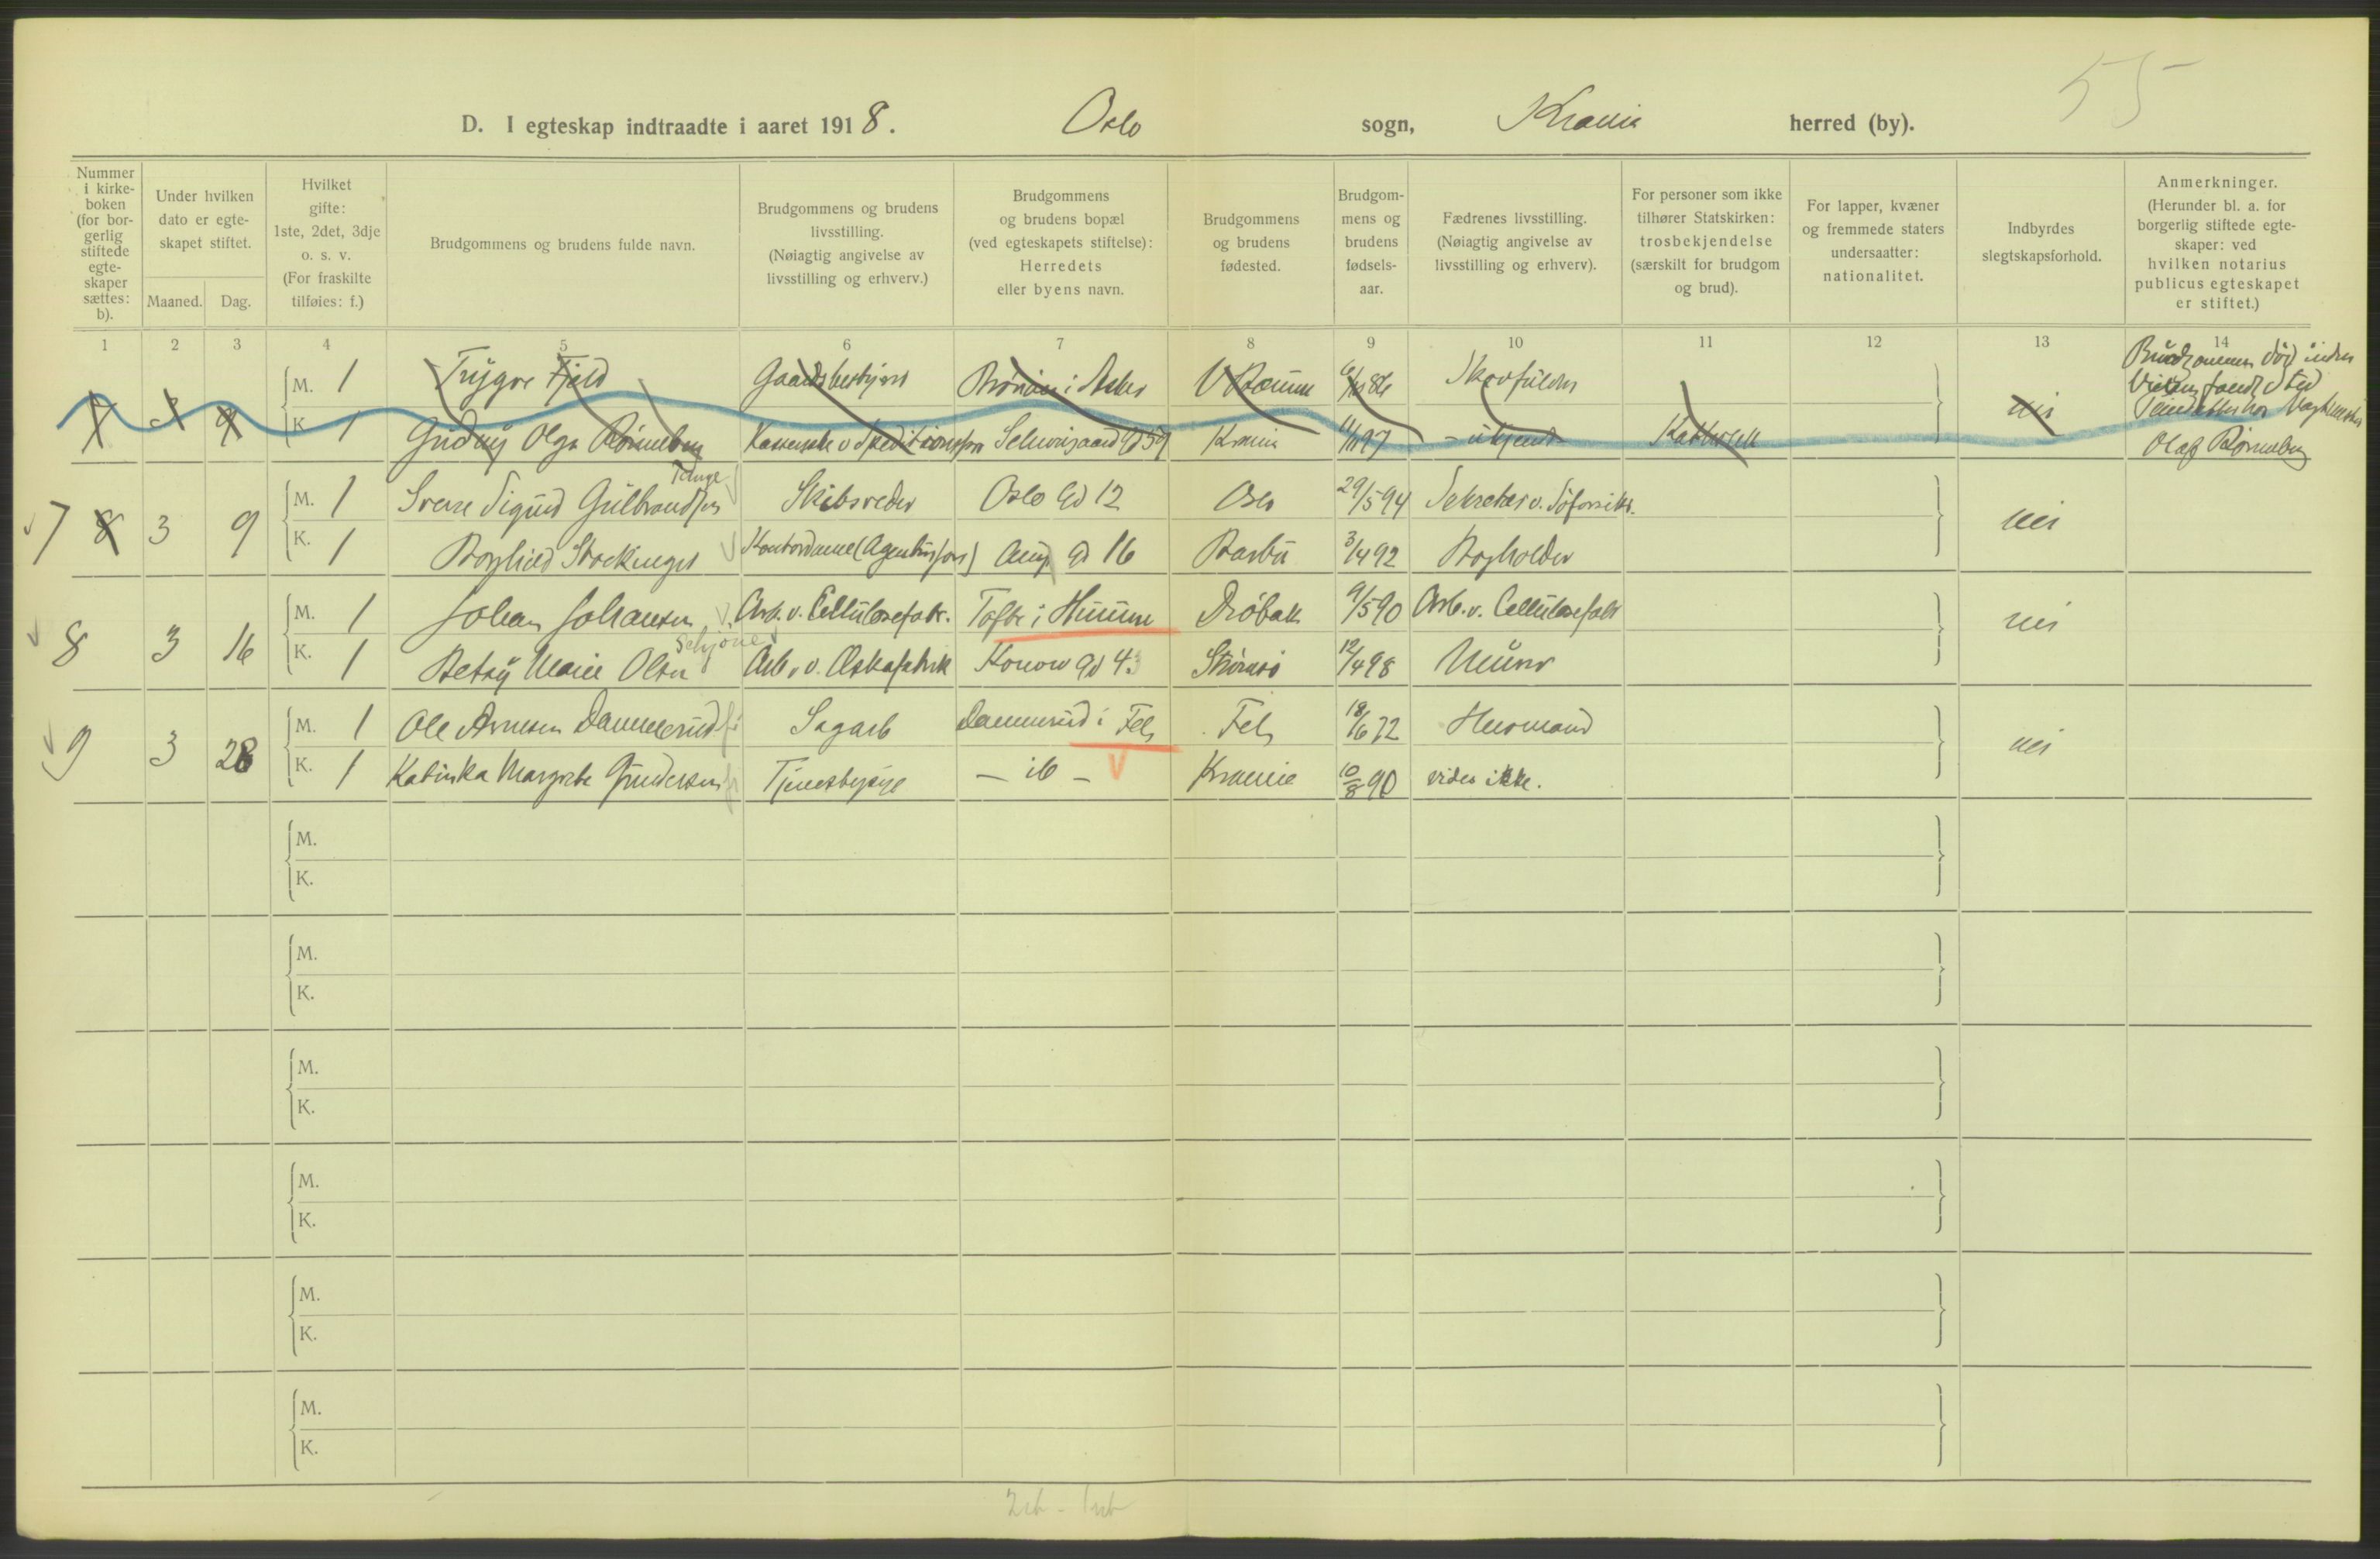 55
D. I egteskap indtraadte i aaret 1918. Oslo sogn, Krania herred (by).
Nummer i kirke-boken (for bor-gerlig stiftede egte-skaper sættes: b).
Under hvilken dato er egte-skapet stiftet.
Maaned. Dag.
Hvilket gifte: 1ste, 2det, 3dje o. s. v. (For fraskilte tilføies: f.)
Brudgommens og brudens fulde navn.
Brudgommens og brudens livsstilling. (Nøiagtig angivelse av livsstilling og erhverv.)
Brudgommens og brudens bopæl (ved egteskapets stiftelse): Herredets eller byens navn.
Brudgommens og brudens fødested.
Brudgom-mens og brudens fødsels-aar.
Fædrenes livsstilling. (Nøiagtig angivelse av livsstilling og erhverv).
For personer som ikke tilhører Statskirken: trosbekjendelse (særskilt for brudgom og brud).
For lapper, kvæner og fremmede staters undersaatter: nationalitet.
Indbyrdes slegtskapsforhold.
Anmerkninger. (Herunder bl. a. for borgerlig stiftede egte-skaper: ved hvilken notarius publicus egteskapet er stiftet.)
1 2 3 4 5 6 7 8 9 10 11 12 13 14
7 3 9 M. 1 Trygve Fjeld Gaardsbestyrer i Asker V Bærum 86 Skovfuldm nei
K. 1 Gudny Olga Rømueberg Schweigaard Gd 59 Krania 97 - ukjendt Katholsk
Brudgommen død inden Vielsen fandt sted
Olaf
7 8 3 9 M. 1 Sverre Sigurd Gulbrandsen Tange Skibsreder Oslo Gd 12 Oslo 29/5 94 Sekretær v. Søforsikr. nei
K. 1 Borghild Stockinger Kontordame (Agenturforr) Gd 16 Barbu 3/4 92 Bogholder
8 3 16 M. 1 Johan Johansen Arb. v. Cellulosefabr. Tofte i Hurum Drøbak 9/5 90 Arb. v. Cellulosefabr nei
K. 1 Betsy Marie Olsen Schjøne Arb. v. Æskefabrik Konow Gd 43 Strømsø 12/4 98 Murer
9 3 28 M. 1 Ole Arnesen Dannerud Sagarb Dannerud i Fet Fet 18/6 72 Husmand nei
K. 1 Katinka Margrete Gundersen Tjenestepige - ib - Krania 10/8 90 vides ikke.
M.
K.
M.
K.
M.
K.
M.
K.
M.
K.
M.
K.